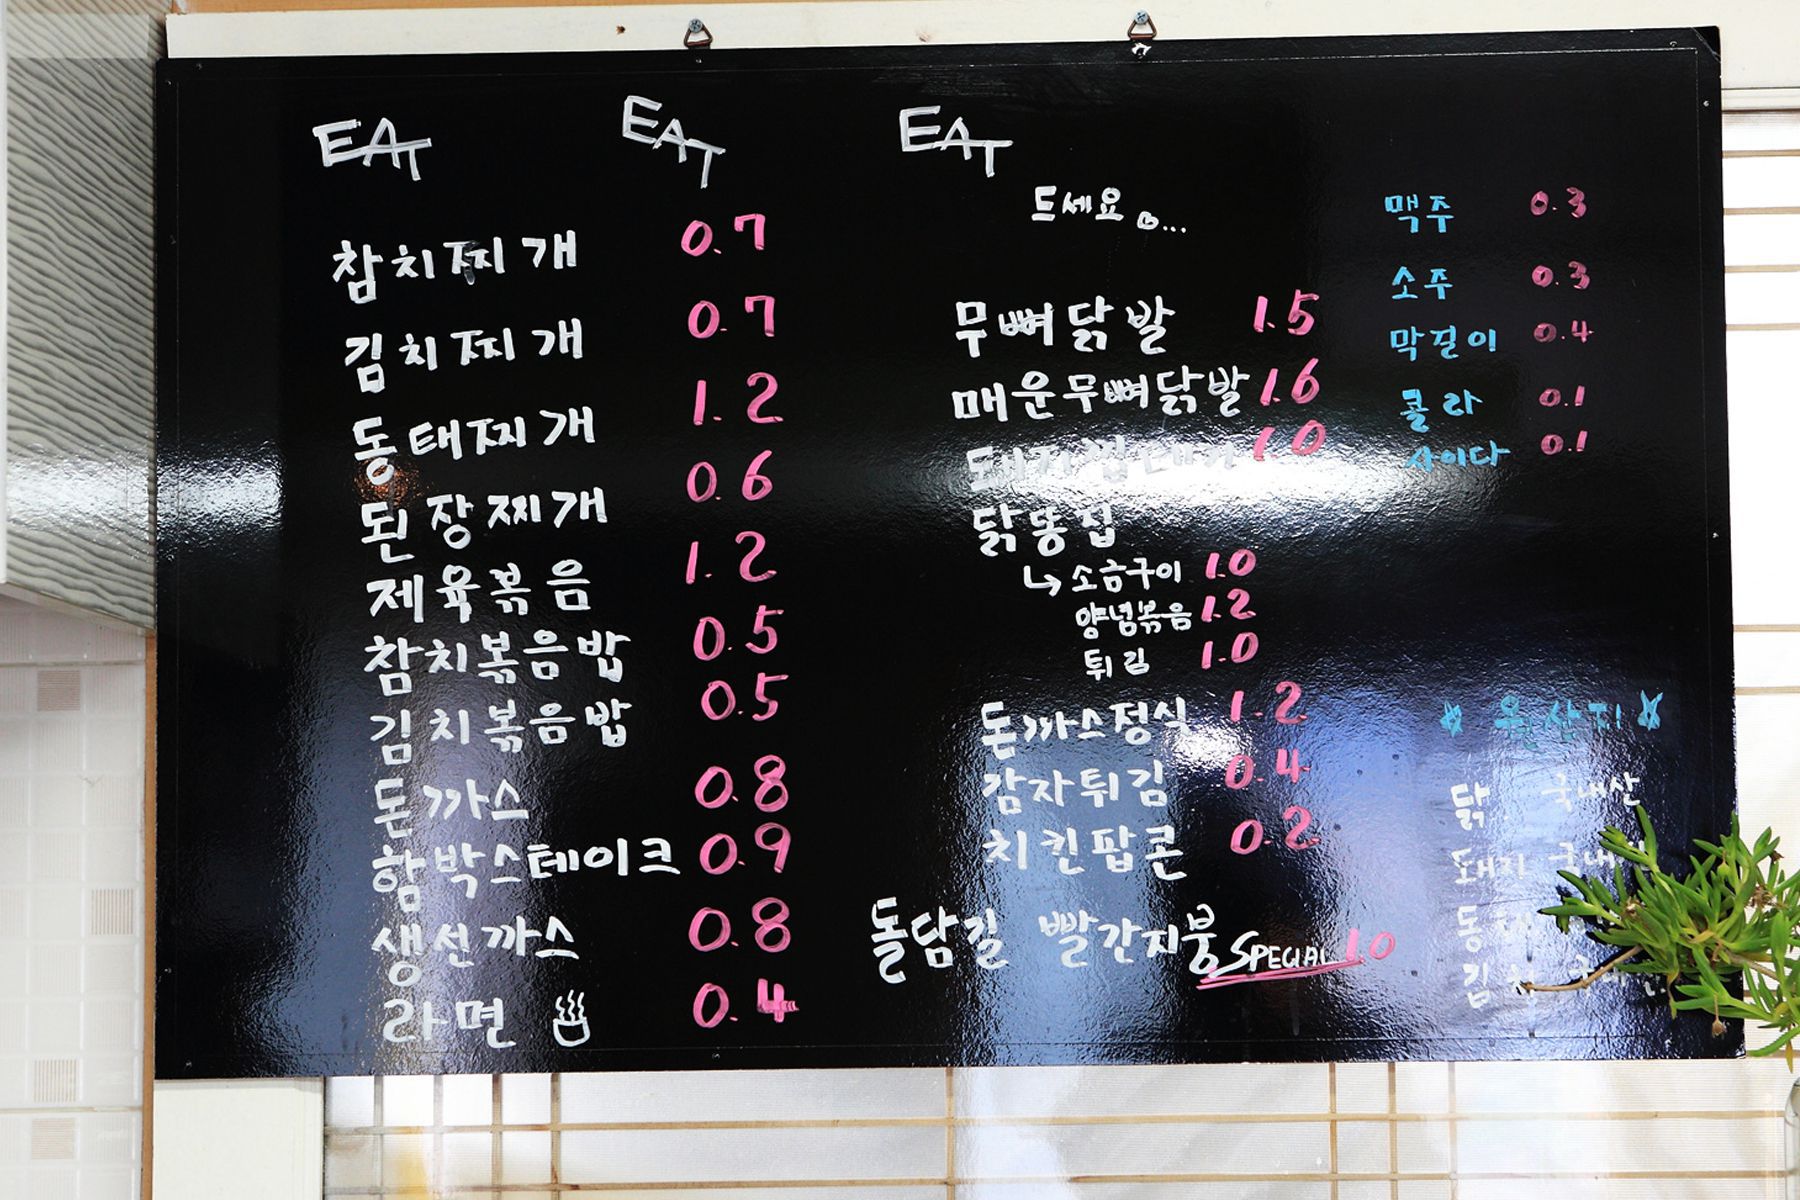 EAT EAT EAT
드세요...
참치찌개 0.7
김치찌개 0.7
동태찌개 1.2
된장찌개 0.6
제육볶음 1.2
참치볶음밥 0.5
김치볶음밥 0.5
돈까스 0.8
함박스테이크 0.9
생선까스 0.8
라면 0.4
무뼈닭발 1.5
매운무뼈닭발 1.6
돼지껍데기 1.0
닭똥집
↳ 소금구이 1.0
양념볶음 1.2
튀김 1.0
돈까스정식 1.2
감자튀김 0.4
치킨팝콘 0.2
돌담길 빨간지붕 SPECIAL 1.0
맥주 0.3
소주 0.3
막걸이 0.4
콜라 0.1
사이다 0.1
☆ 원산지 ☆
닭 국내산
돼지
동태
김치